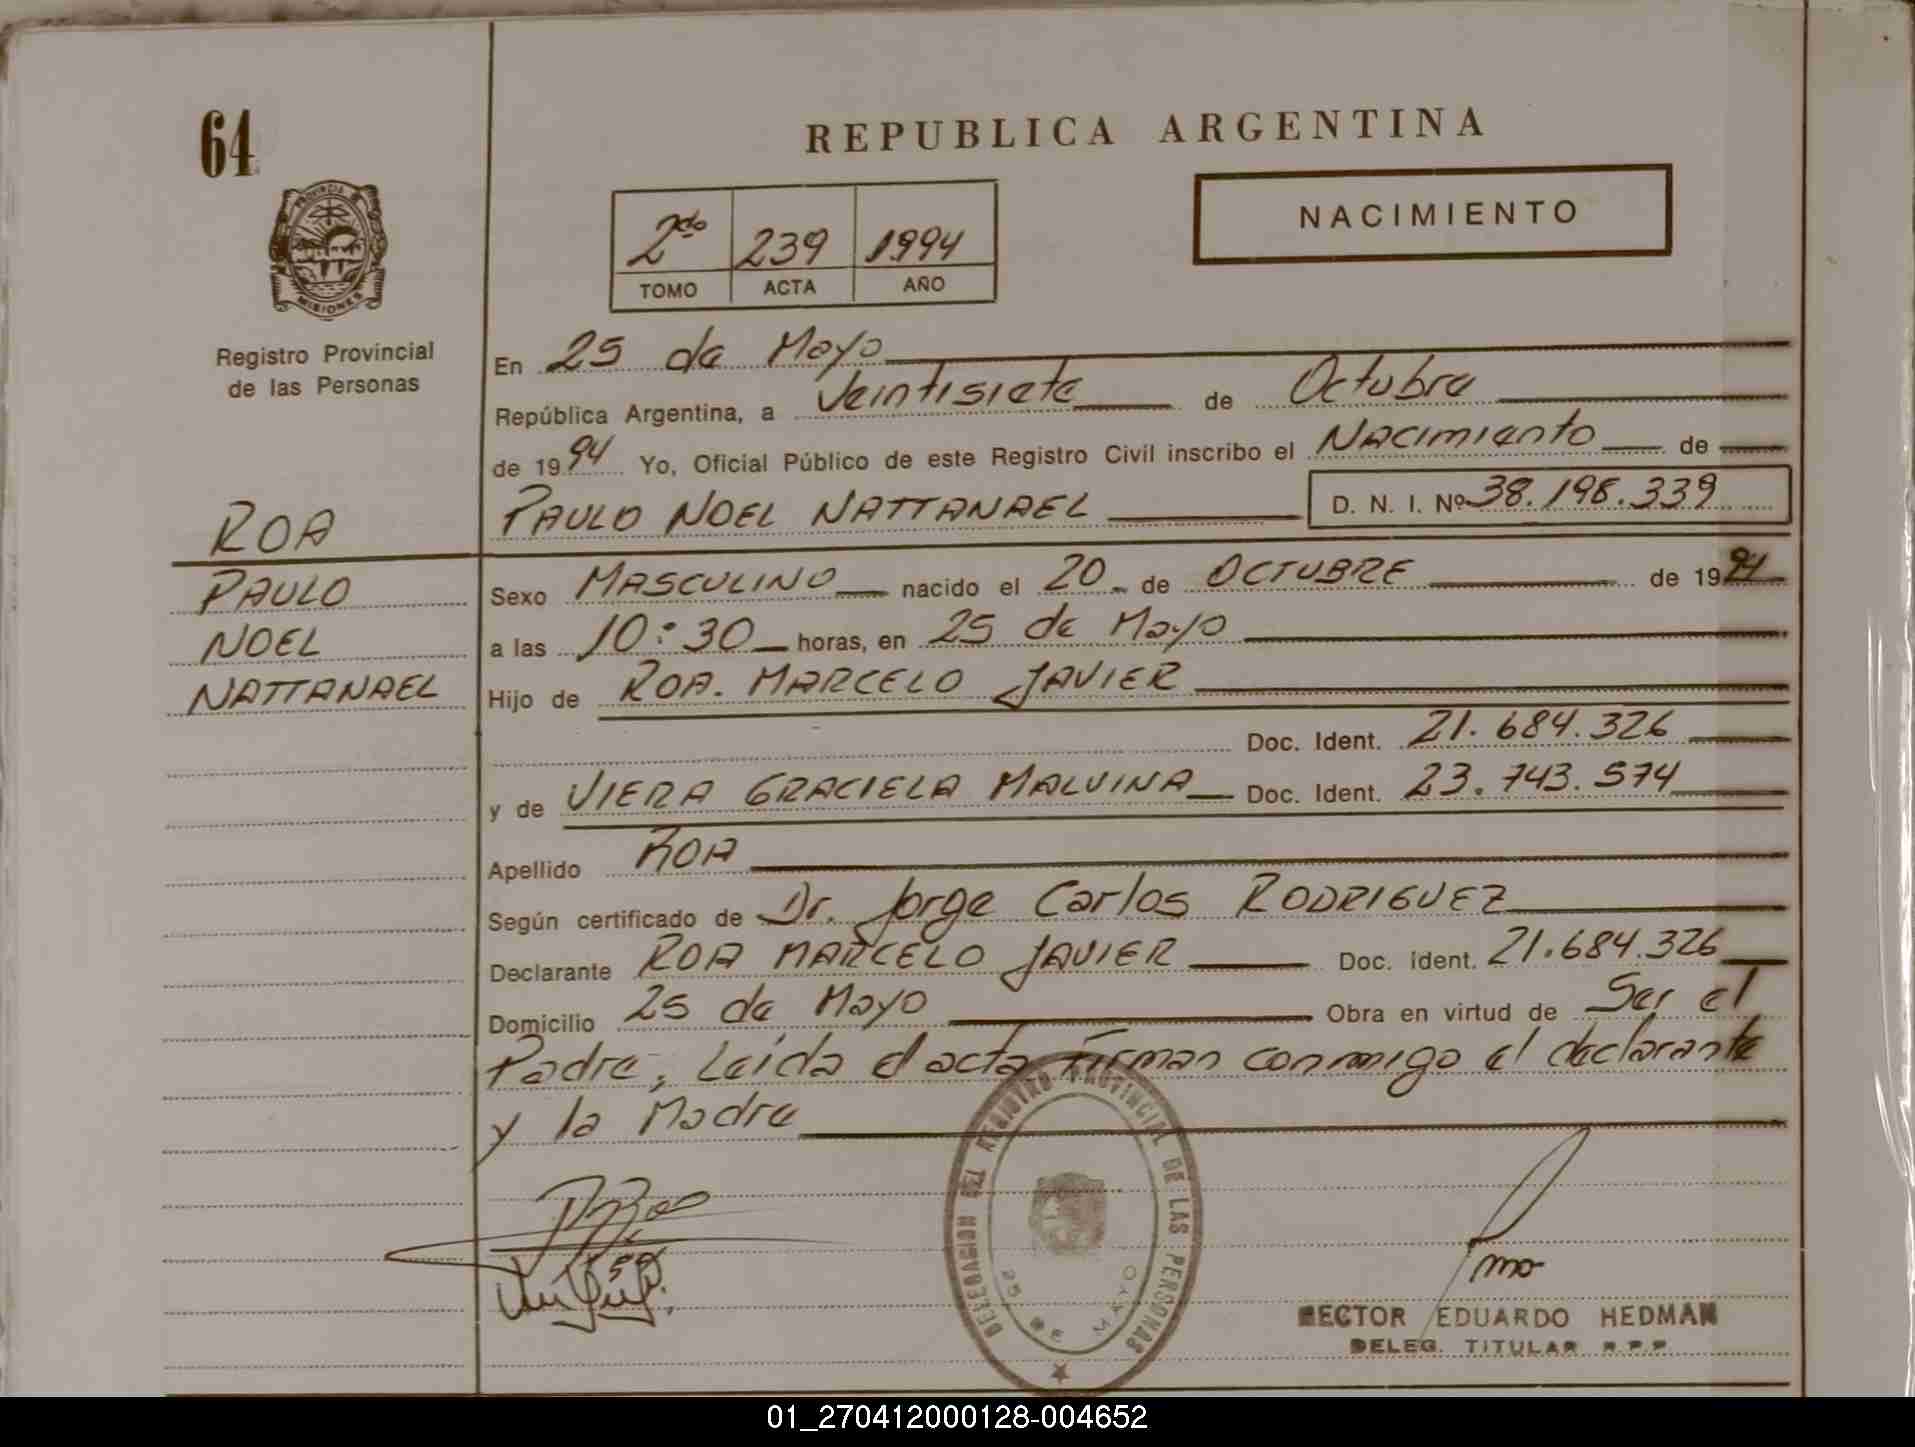 64
REPUBLICA ARGENTINA
PROVINCIA DE
MISIONES
Registro Provincial
de las Personas
2do 239 1994
TOMO ACTA AÑO
NACIMIENTO
En 25 de Mayo
República Argentina, a Veintisiete de Octubre
de 1994 Yo, Oficial Público de este Registro Civil inscribo el Nacimiento de
PAULO NOEL NATTANAEL D. N. I. Nº 38.198.339
ROA
PAULO
NOEL
NATTANAEL
Sexo MASCULINO nacido el 20 de OCTUBRE de 1994
a las 10:30 horas, en 25 de Mayo
Hijo de ROA. MARCELO JAVIER
Doc. Ident. 21.684.326
y de VIERA GRACIELA MALVINA Doc. Ident. 23.743.574
Apellido ROA
Según certificado de Dr. Jorge Carlos RODRIGUEZ
Declarante ROA MARCELO JAVIER Doc. ident. 21.684.326
Domicilio 25 de Mayo Obra en virtud de Ser el
Padre, Leída el acta Firman conmigo el declarante
y la Madre
DELEGACION DEL REGISTRO PROVINCIAL DE LAS PERSONAS
25 DE MAYO
HECTOR EDUARDO HEDMAN
DELEG. TITULAR R.P.P.
01_270412000128-004652